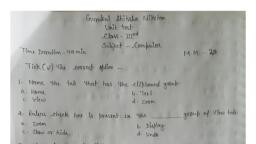 Unit test
Class - IIIrd
Subject - Computer
Time Duration - 40 min M.M. - 20
Tick (✓) the correct option -
1. Name the tab that has the clipboard group
a. Home b. Text
c. View d. Zoom
2. Ruler check box is present in the ______ group of View tab.
a. Zoom b. Display
c. Show or hide d. Undo